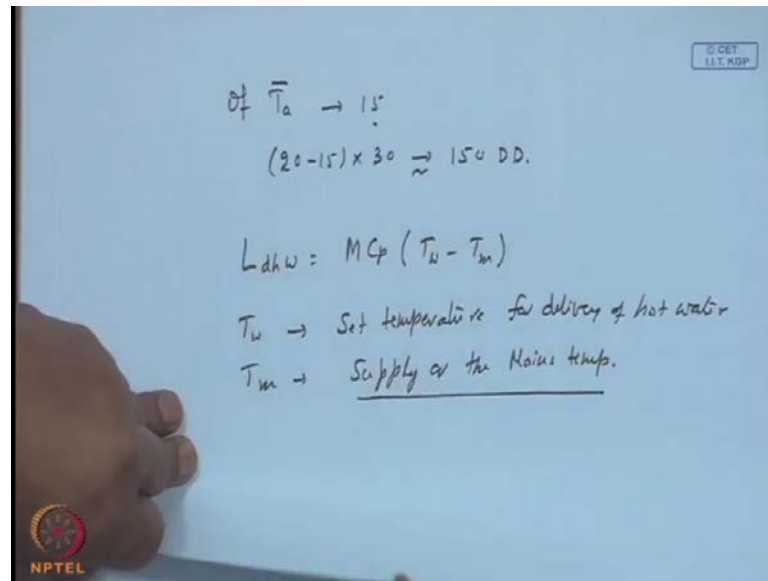 © CET
I.I.T. KGP
Of T̄a → 15
(20-15) × 30 ⇒ 150 DD.
Ldhw = MCp (Tw - Tm)
Tw → Set temperature for delivery of hot water
Tm → Supply or the Mains temp.
NPTEL